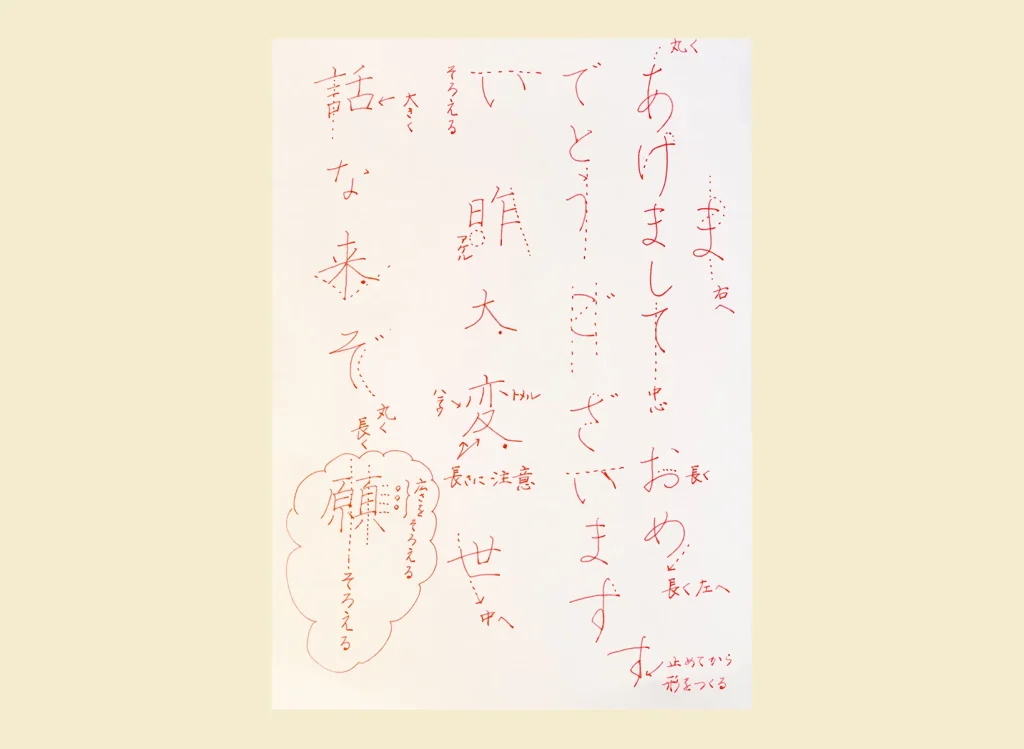 丸く
ま
右へ
あけまして
中心
おめ
長く
長く左へ
でとうございます
す
止めてから
形をつくる
い
そろえる
昨
アケル
大変
ハラウ
トメル
長さに注意
世
中へ
話
大きく
な来ぞ
丸く
長く
願
広さをそろえる
そろえる